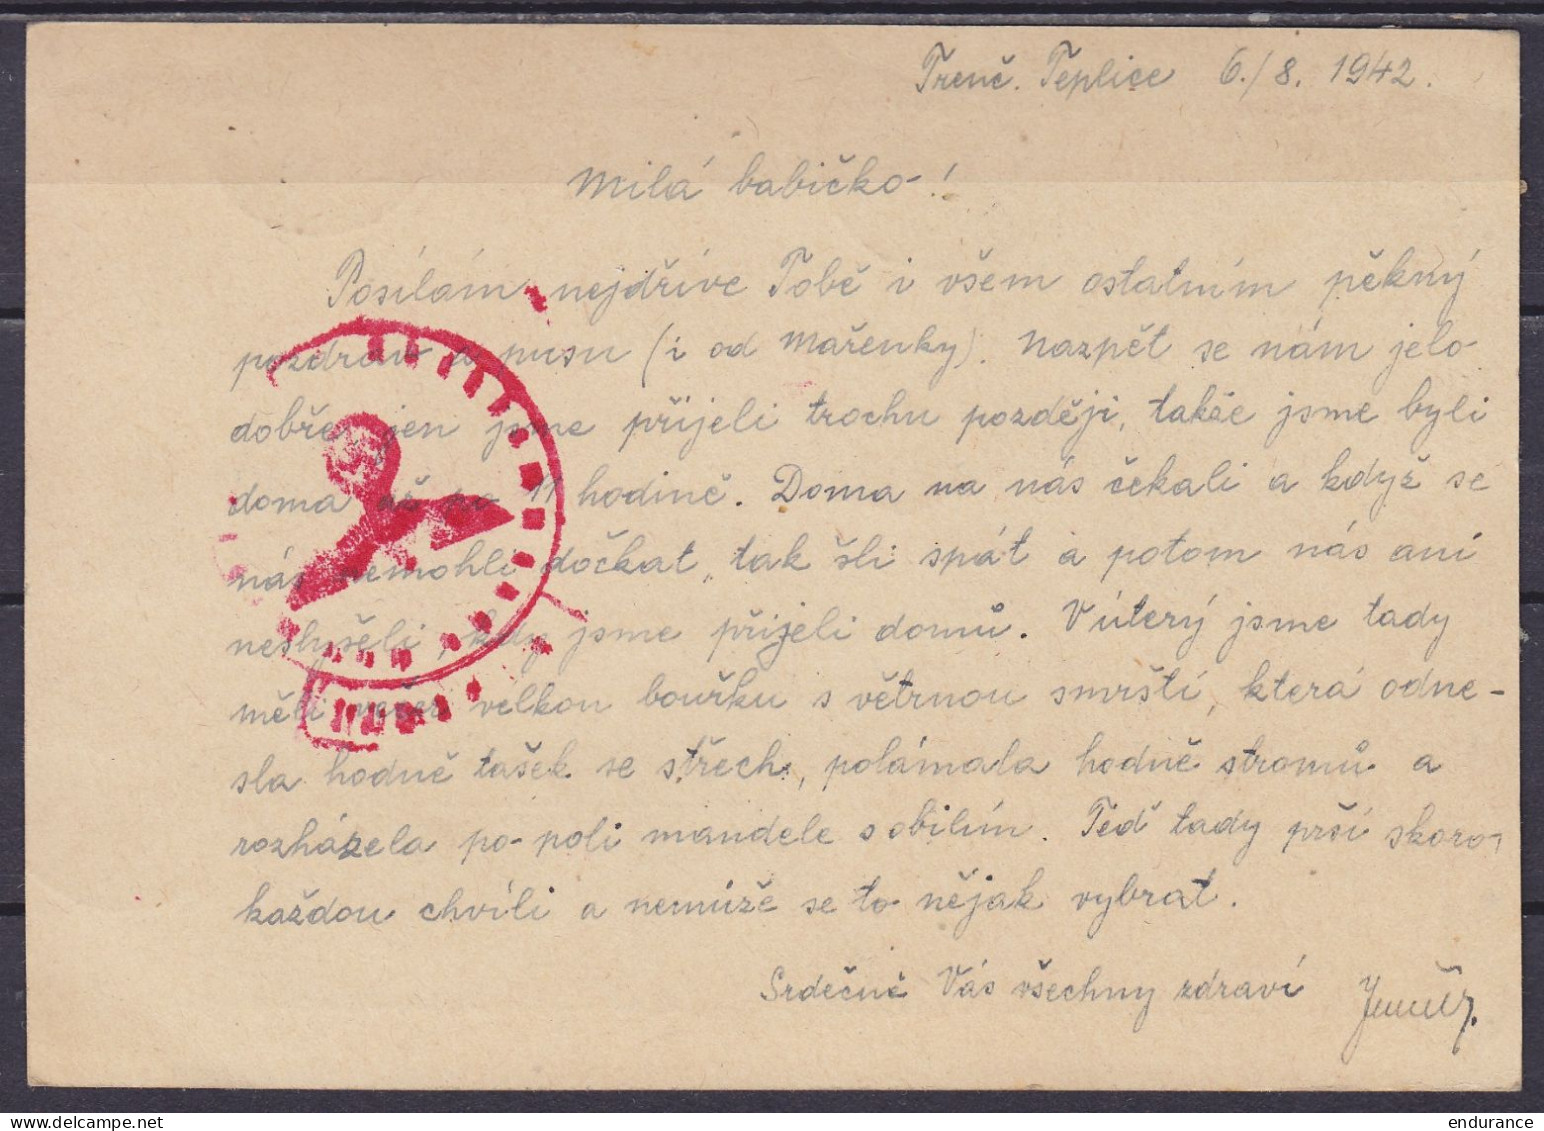 Trenč. Teplice 6./8. 1942.
Milá babičko!
Posílám nejdříve Tobě i všem ostatním pěkný
pozdrav a pusu (i od Mařenky). Nazpět se nám jelo
dobře, jen jsme přijeli trochu později, takže jsme byli
doma až po 11 hodině. Doma na nás čekali a když se
nás nemohli dočkat, tak šli spát a potom nás ani
neslyšeli, kdy jsme přijeli domů. V úterý jsme tady
měli večer velkou bouřku s větrnou smrští, která odne-
sla hodně tašek se střech, polámala hodně stromů a
rozházela po poli mandele s obilím. Teď tady prší skoro
každou chvíli a nemůže se to nějak vybrat.
Srdečně Vás všechny zdraví
endurance